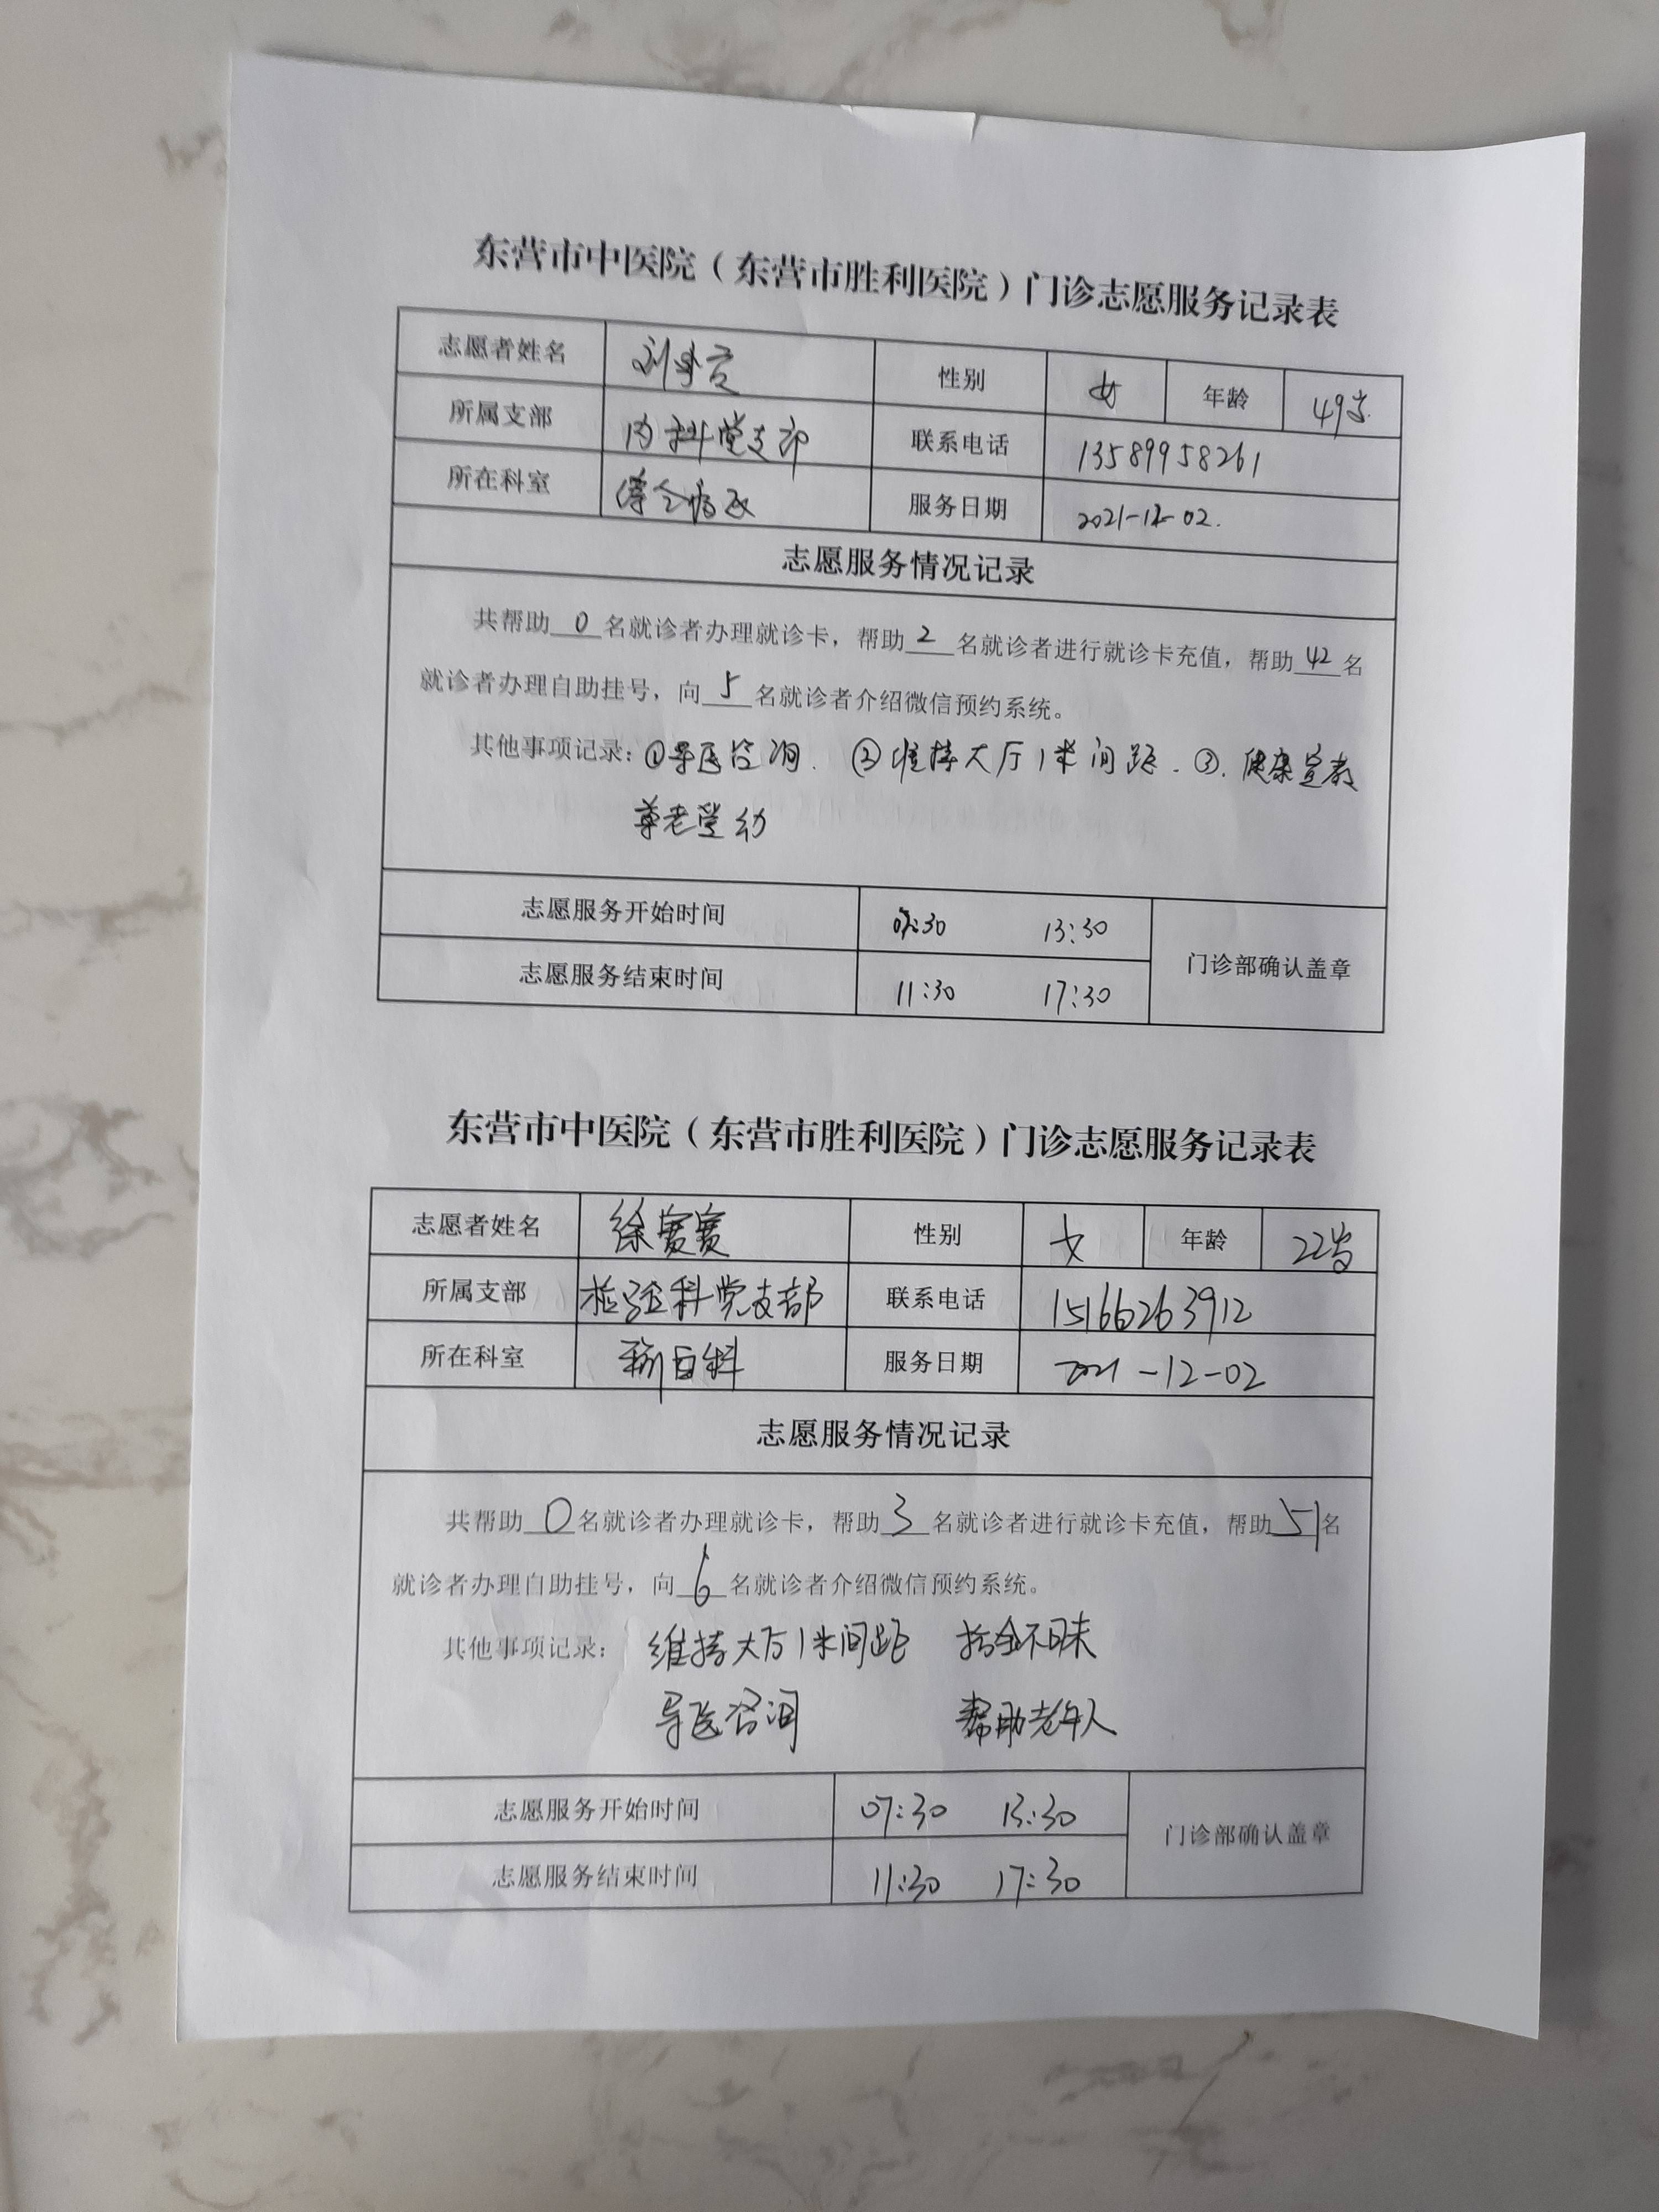 东营市中医院（东营市胜利医院）门诊志愿服务记录表
志愿者姓名 刘 性别 女 年龄 49岁
所属支部 内科党支部 联系电话 13589958261
所在科室 服务日期 2021-12-02.
志愿服务情况记录
共帮助0名就诊者办理就诊卡，帮助2名就诊者进行就诊卡充值，帮助42名
就诊者办理自助挂号，向5名就诊者介绍微信预约系统。
其他事项记录：①导医咨询. ②维持大厅1米间距. ③. 健康宣教
尊老爱幼
志愿服务开始时间 07:30 13:30
门诊部确认盖章
志愿服务结束时间 11:30 17:30
东营市中医院（东营市胜利医院）门诊志愿服务记录表
志愿者姓名 徐赛赛 性别 女 年龄 22岁
所属支部 检验科党支部 联系电话 15166263912
所在科室 服务日期 2021-12-02
志愿服务情况记录
共帮助0名就诊者办理就诊卡，帮助3名就诊者进行就诊卡充值，帮助51名
就诊者办理自助挂号，向6名就诊者介绍微信预约系统。
其他事项记录： 维持大厅1米间距 拾金不昧
导医咨询 帮助老年人
志愿服务开始时间 07:30 13:30
门诊部确认盖章
志愿服务结束时间 11:30 17:30